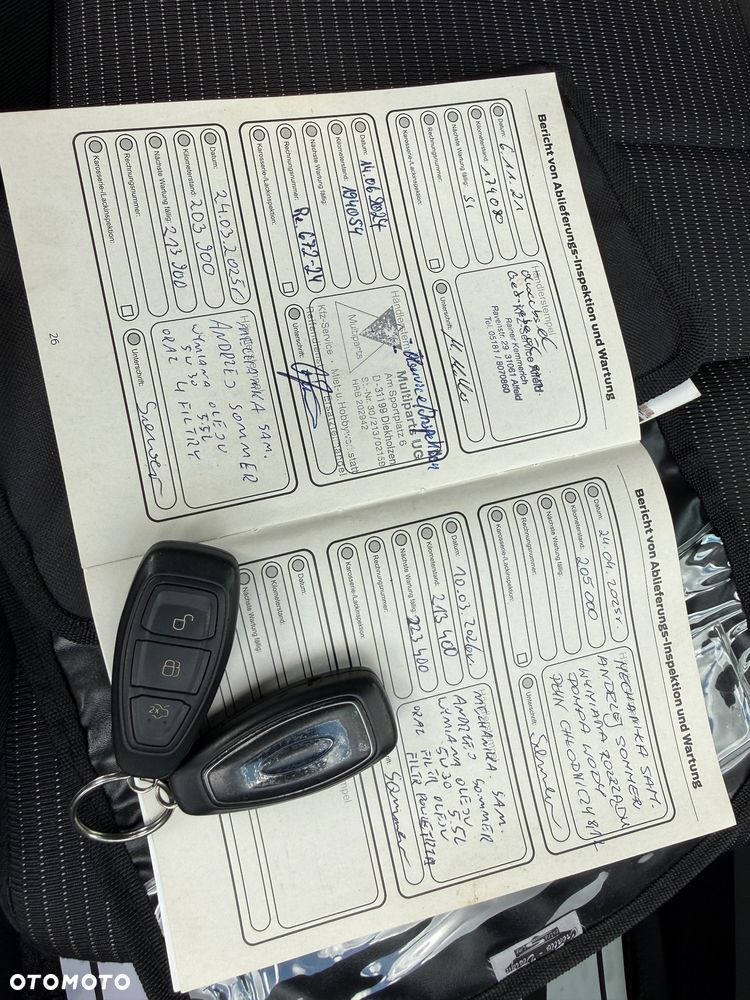 Bericht von Ablieferungs-Inspektion und Wartung
Datum: 6.11.21
Kilometerstand: 174080
Nächste Wartung fällig: SI
Rechnungsnummer:
Karosserie-/Lackinspektion:
Händlerstempel
KFZ-Service Alfeld
Rainer Kammerich
Ravenstr. 29 31061 Alfeld
Tel. 05181 / 8070860
Unterschrift:
Datum: 14.06.2024
Kilometerstand: 194054
Nächste Wartung fällig:
Rechnungsnummer: Re 672-24
Karosserie-/Lackinspektion:
Händlerstempel
Multiparts UG
Am Sportplatz 6
D-31199 Diekholzen
St.-Nr. 30/213/02159
HRB 202942
Multiparts
Kfz-Service • Miet- u. Hobbywerkstatt
Unterschrift:
Datum: 24.03.2025r
Kilometerstand: 203 900
Nächste Wartung fällig: 213 900
Rechnungsnummer:
Karosserie-/Lackinspektion:
MECHANIKA SAM.
ANDRZEJ SOMMER
WYMIANA OLEJU
5W30 5.5L
ORAZ 4 FILTRY
Unterschrift: Sommer
26
Bericht von Ablieferungs-Inspektion und Wartung
Datum: 24.04.2025r.
Kilometerstand: 205 000
Nächste Wartung fällig:
Rechnungsnummer:
Karosserie-/Lackinspektion:
MECHANIKA SAM.
ANDRZEJ SOMMER
WYMIANA ROZRZĄDU
POMPA WODY
PŁYN CHŁODNICZY 8L
Unterschrift: Sommer
Datum: 10.03.2026r.
Kilometerstand: 213 400
Nächste Wartung fällig: 223 400
Rechnungsnummer:
Karosserie-/Lackinspektion:
MECHANIKA SAM.
ANDRZEJ SOMMER
WYMIANA OLEJU
5W30 5.5L
ORAZ FILTR OLEJU
FILTR POWIETRZA
Sommer
Datum:
Kilometerstand:
Nächste Wartung fällig:
2x
OTOMOTO